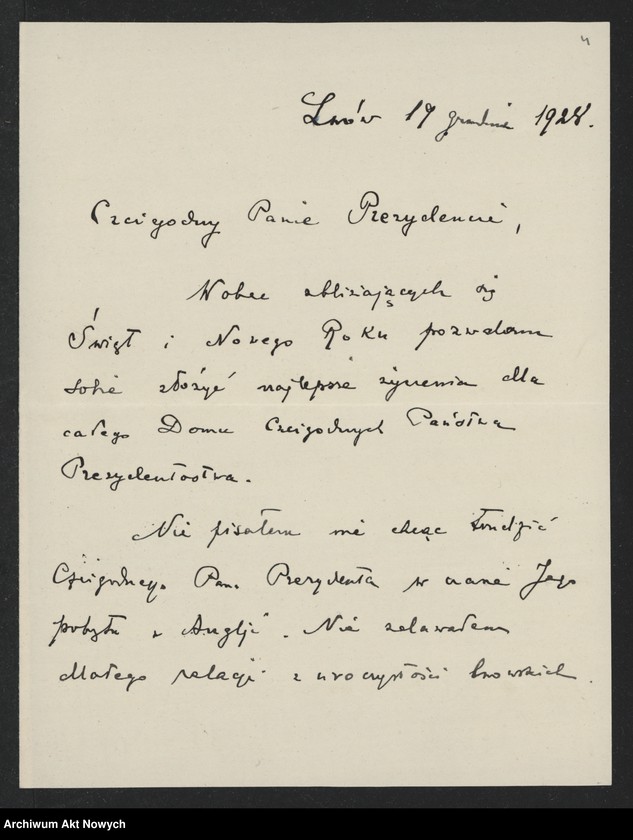 4
Lwów 19 grudnia 1928.
Czcigodny Panie Prezydencie,
Wobec zbliżających się
Świąt i Nowego Roku pozwalam
sobie złożyć najlepsze życzenia dla
całego Domu Czcigodnych Państwa
Prezydentostwa.
Nie pisałem nie chcąc trudzić
Czcigodnego Pana Prezydenta w czasie Jego
pobytu w Anglji. Nie zdawałem
dlatego relacji z uroczystości lwowskich.
Archiwum Akt Nowych